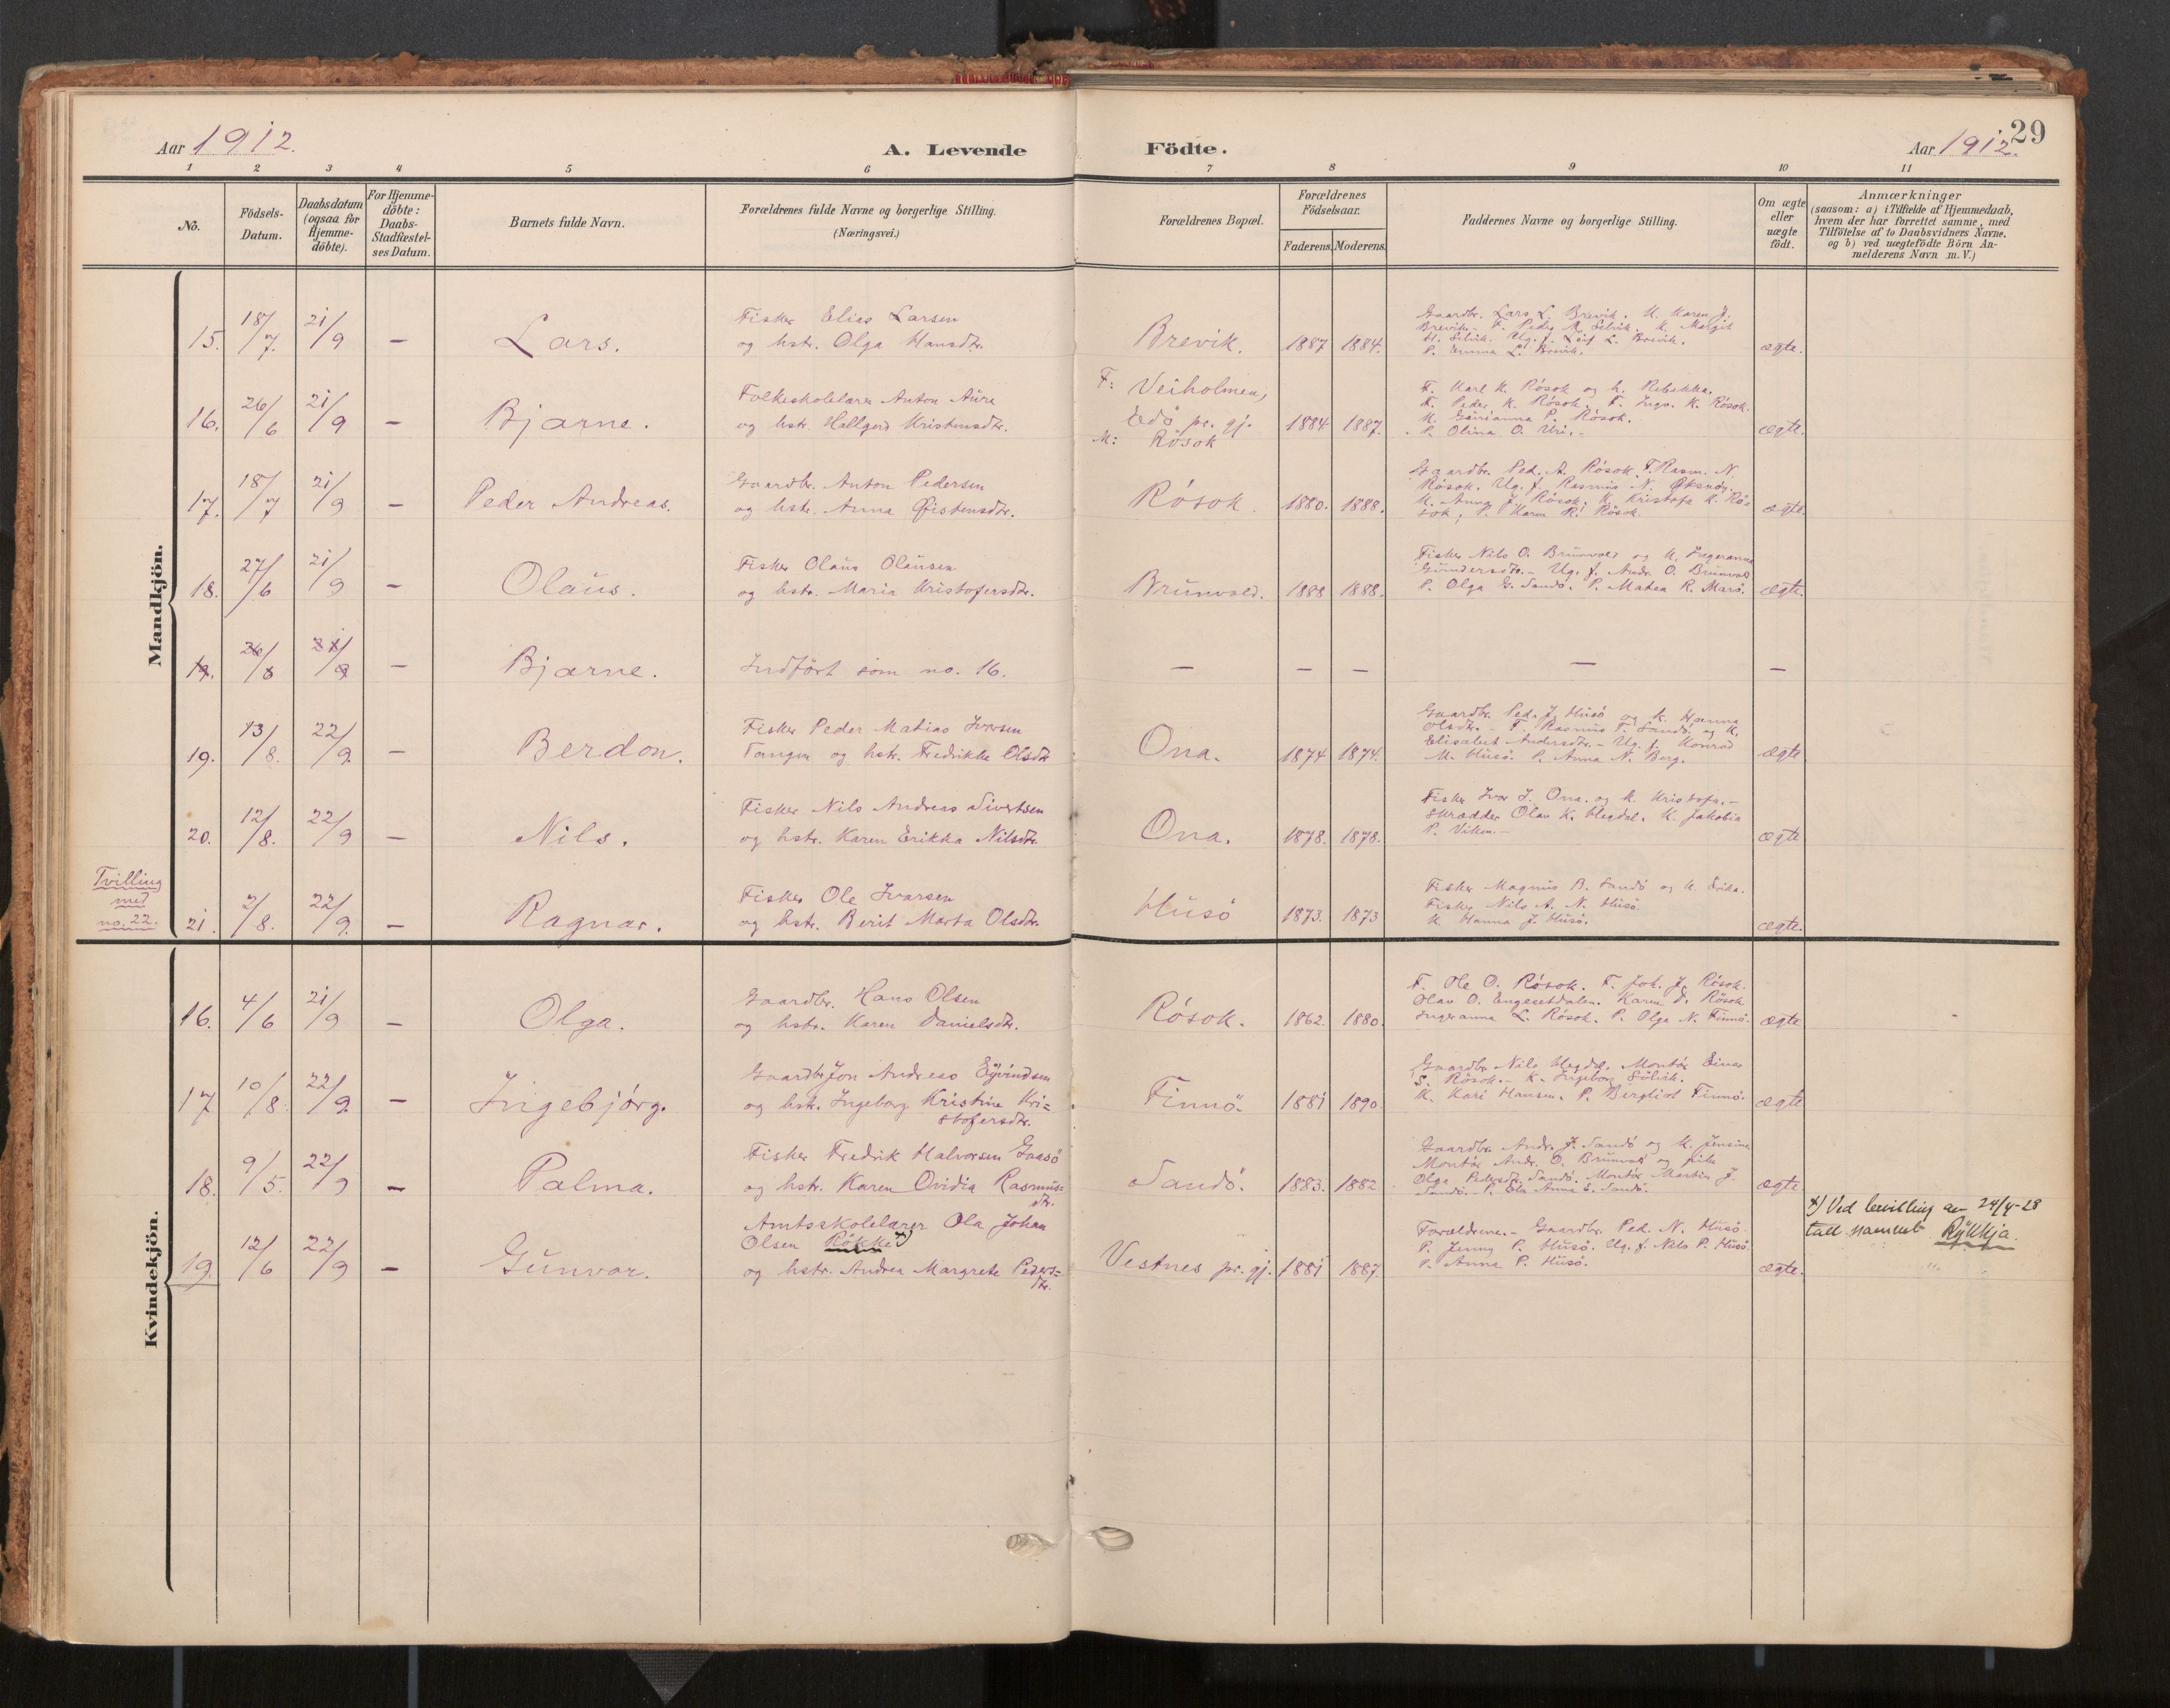 Aar 1912.
A. Levende Födte.
Aar 1912.
29
1 2 3 4 5 6 7 8 9 10 11
No.
Födsels-
Datum.
Daabsdatum
(ogsaa for
Hjemme-
döbte).
For Hjemme-
döbte:
Daabs-
Stadfæstel-
ses Datum.
Barnets fulde Navn.
Forældrenes fulde Navne og borgerlige Stilling.
(Næringsvei.)
Forældrenes Bopæl.
Forældrenes
Födselsaar.
Faderens. Moderens.
Faddernes Navne og borgerlige Stilling.
Om ægte
eller
uægte
födt.
Anmærkninger
(saasom: a) i Tilfælde af Hjemmedaab,
hvem der har forrettet samme, med
Tilföielse af to Daabsvidners Navne,
og b) ved uægtefödte Börn An-
melderens Navn m. V.)
Mandkjön.
15. 18/7. 21/9 – Lars.
Fisker Elias Larsen
og hstr. Olga Hansdtr.
Brevik. 1887 1884.
Gaardbr. Lars L. Brevik. K. Karen J.
Brevik. F. Peder A. Selvik. K. Margit
H. Selvik. Ug. f. Leif L. Brevik.
P. Emma L. Brevik.
ægte.
16. 26/6 21/9 – Bjarne.
Folkeskolelærer Anton Aure
og hstr. Hallgerd Kristensdtr.
F: Veiholmen,
Edö pr. gj.
M: Rösok
1884 1887.
F. Karl K. Rösok og h. Rebekka.
F. Peder K. Rösok. F. Ingv. K. Rösok.
K. Gurianna P. Rösok.
P. Olina O. Uri.
ægte.
17. 18/7 21/9 – Peder Andreas.
Gaardbr. Anton Pedersen
og hstr. Anna Østensdtr.
Rösok. 1880. 1888.
Gaardbr. Ped. A. Rösok. F. Rasm. N.
Rösok. Ug. f. Rasmus N.
K. Anna J. Rösok. K. Kristofa K. Rö=
sok, P. Karen R. Rösok.
ægte.
18. 27/6 21/9 – Olaus.
Fisker Olaus Olausen
og hstr. Maria Kristofersdtr.
Brunvold. 1888 1888.
Fisker Nils O. Brunvold og K. Ingeranna
Gundersdtr. – Ug. f. Andr. O. Brunvold
P. Olga G. Sandö. P. Matea R. Marö.
ægte.
19. 26/6 21/9 – Bjarne.
Indfört som no. 16.
– – – – –
19. 13/8. 22/9. – Berdon.
Fisker Peder Matias Ivarsen
Tangen og hstr. Fredrikke Olsdtr
Ona. 1874 1874.
Gaardbr. Ped. J. Husö og K. Hanna
Olsdtr. – F. Rasmus T. Sandö og K.
Elisabet Andersdtr. – Ug. f. Konrad
M. Husö. P. Anna N. Berg.
ægte
20. 12/8. 22/9 – Nils.
Fisker Nils Andreas Sivertsen
og hstr. Karen Erikka Nilsdtr.
Ona. 1878. 1878.
Fisker Ivar J. Ona. og K. Kristofa. –
Skrædder Olav K. Hegdal. K. Jakobia
P. Viken. –
ægte
Tvilling
med
no. 22.
21. 2/8. 22/9. – Ragnar.
Fisker Ole Ivarsen
og hstr. Berit Marta Olsdtr.
Husö 1873. 1873
Fisker Magnus B. Sandö og K. Erika.
Fisker Nils A. N. Husö.
K. Hanna J. Husö.
ægte.
Kvindekjön.
16. 4/6 21/9 – Olga.
Gaardbr. Hans Olsen
og hstr. Karen Danielsdtr.
Rösok. 1862. 1880.
F. Ole O. Rösok. F. Joh. J. Rösok.
Olav O. Engesetdalen. Karen D. Rösok
Ingeranna L. Rösok. P. Olga N. Finnö.
ægte
17 10/8. 22/9. – Ingebjörg.
Gaardbr Jon Andreas Eyvindsen
og hstr. Ingeborg Kristine Kri=
stofersdtr.
Finnö. 1881 1890.
Gaardbr Nils Hegdal. Montör Einar
S. Rösok. – K. Ingeborg Sölvik.
K. Kari Hansen. P. Bergliot Finnö.
ægte
18. 9/5. 22/9 – Palma.
Fisker Fredrik Halvorsen Gaasö
og hstr. Karen Ovidia Rasmus=
dtr.
Sandö. 1883. 1882
Gaardbr. Andr. J. Sandö og K. Jensine
Montör Andr. O. Brunvold og pike
Olga Pedersdtr. Sandö. Montör Martin J.
Sandö. – P. Anna E. Sandö.
ægte.
19. 12/6 22/9 – Gunvor.
Amtsskolelærer Ola Johan
Olsen Rökke x)
og hstr. Andrea Margrete Peders=
dtr.
Vestnes pr. gj. 1881 1887
Forældrene. – Gaardbr. Ped. N. Husö.
P. Jenny P. Husö. Ug. f. Nils P. Husö.
P. Anna P. Husö.
ægte.
x) Ved bevilling av 24/4-28
tatt navnet Rykkja.